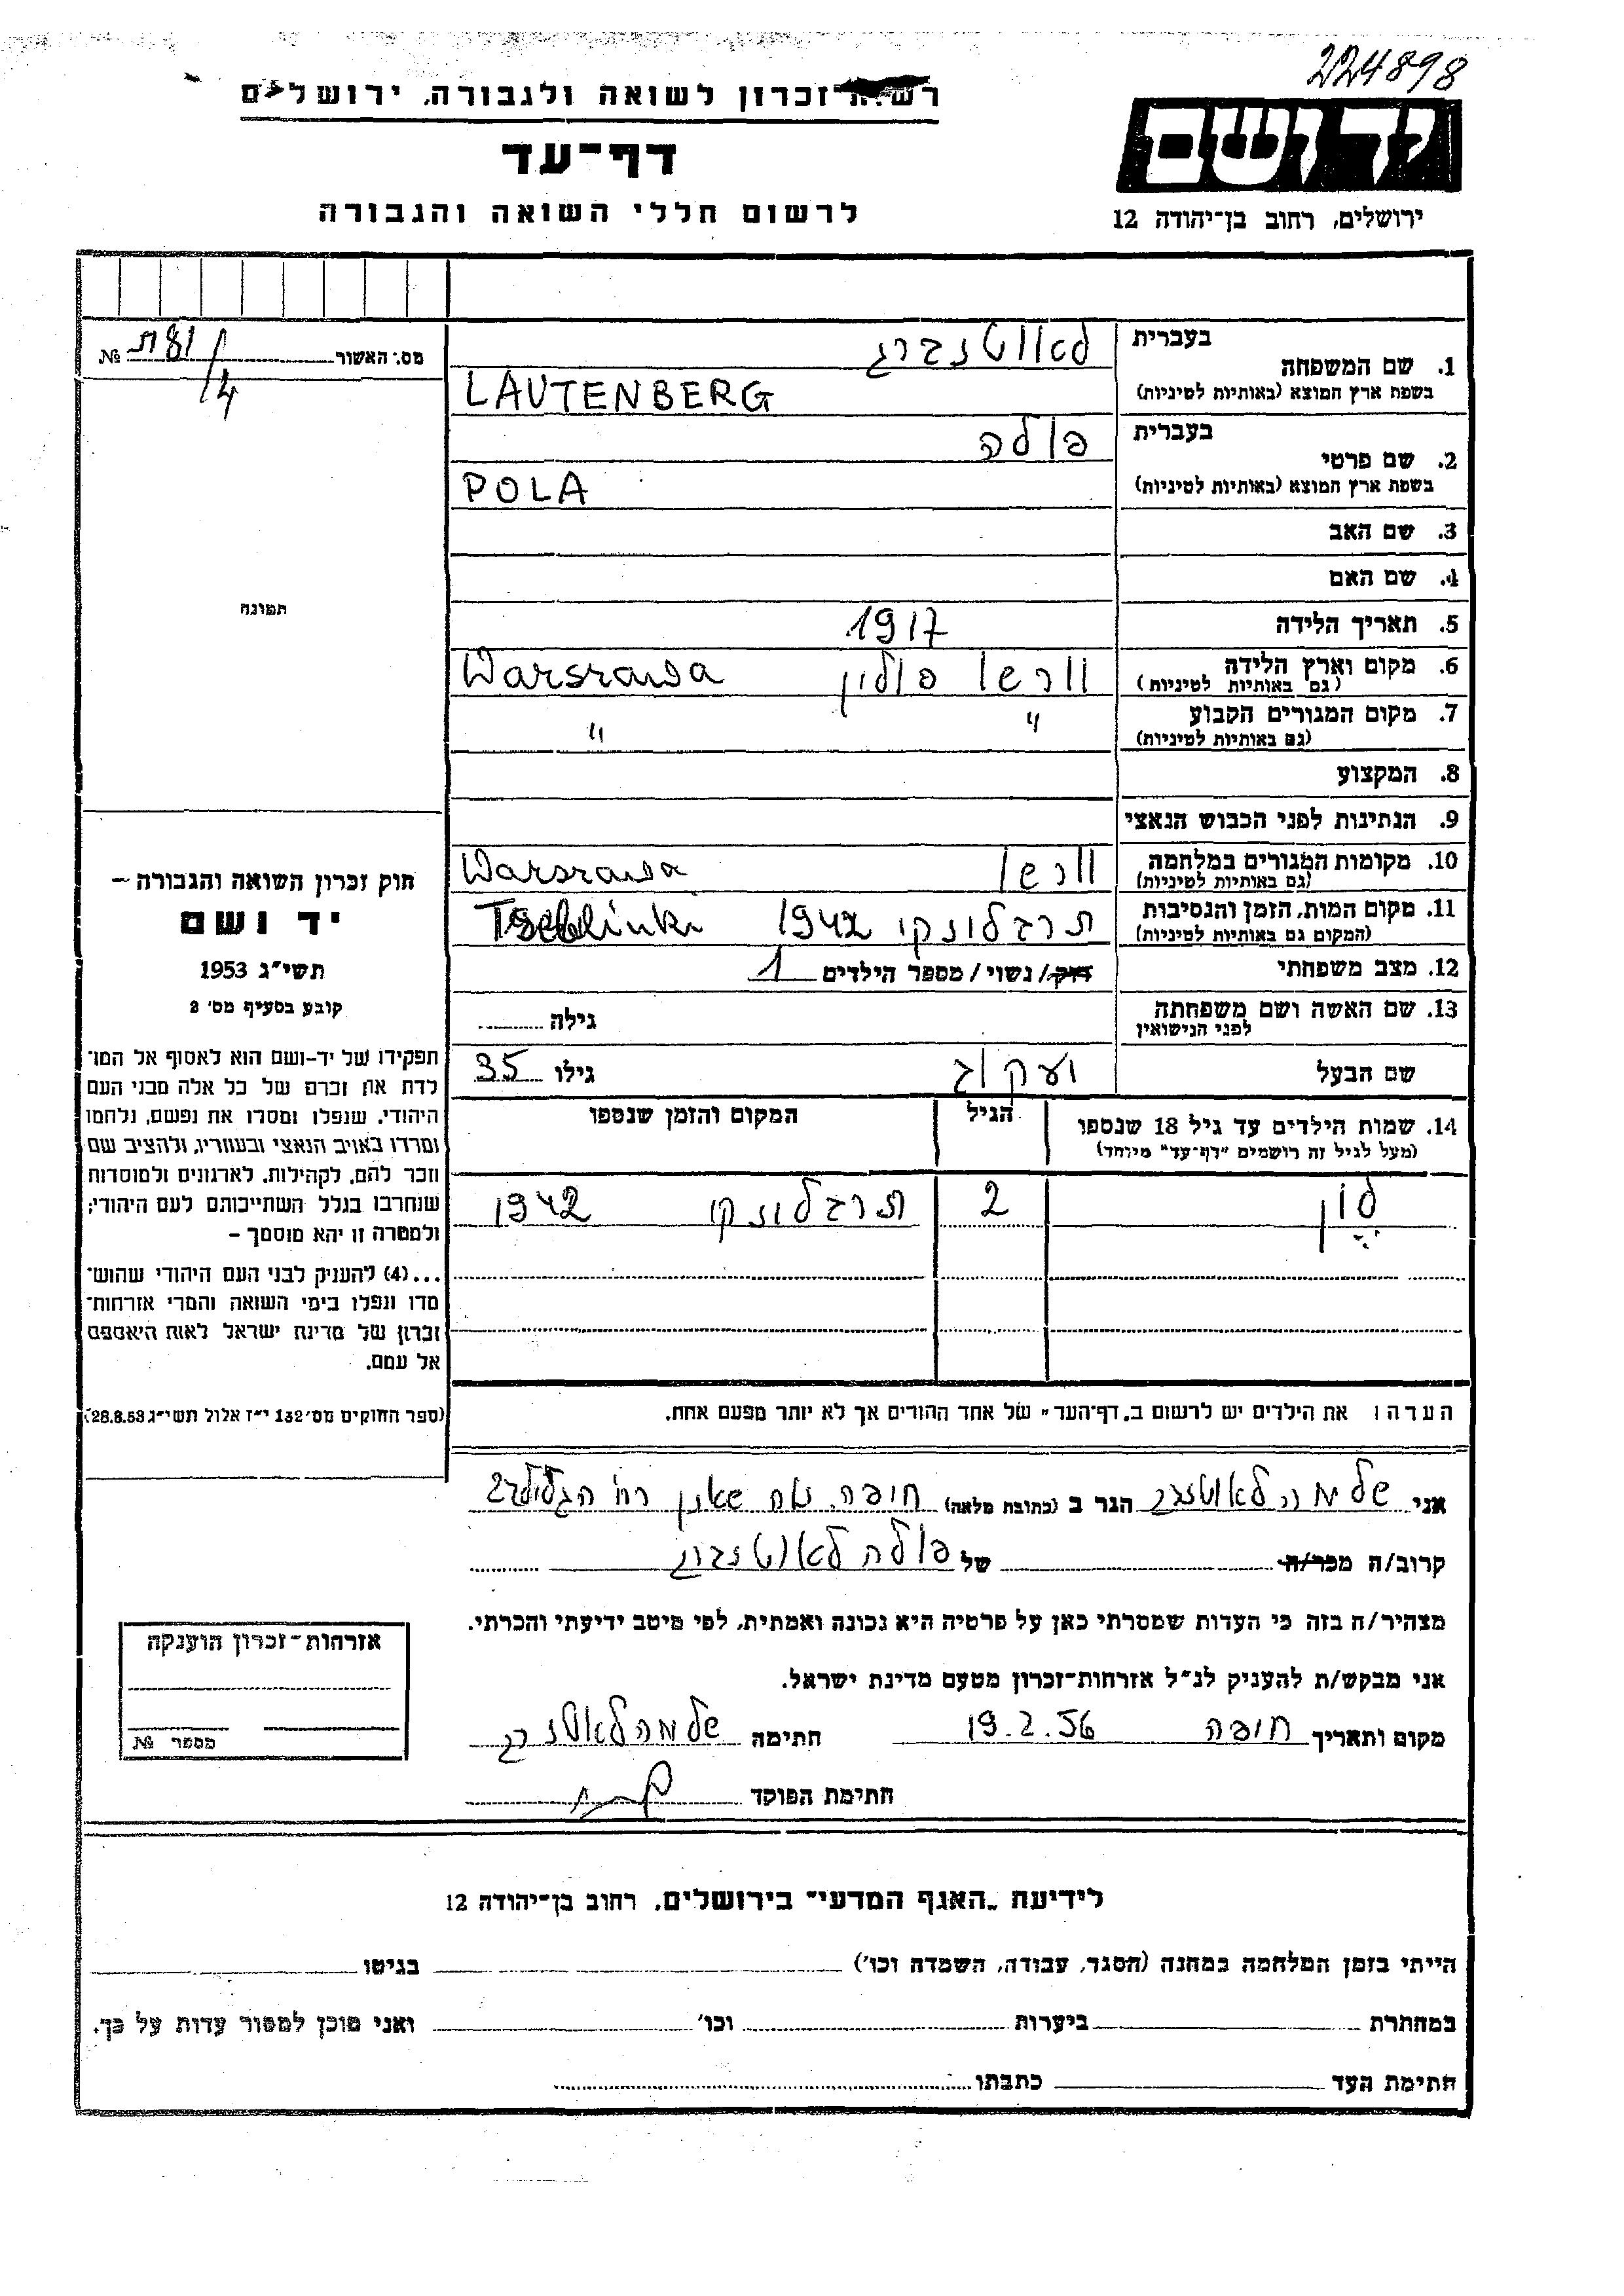 224898
רשות זכרון לשואה ולגבורה, ירושלים
יד ושם
דף־עד
לרשום חללי השואה והגבורה
ירושלים, רחוב בן־יהודה 12
מס. האשור № 181/4
1. שם המשפחה בעברית לאוטנברג
בשפת ארץ המוצא (באותיות לטיניות) LAUTENBERG
2. שם פרטי בעברית פולה
בשפת ארץ המוצא (באותיות לטיניות) POLA
3. שם האב
4. שם האם
5. תאריך הלידה 1917
6. מקום וארץ הלידה (גם באותיות לטיניות) וורשו פולין Warszawa
7. מקום המגורים הקבוע (גם באותיות לטיניות) " "
8. המקצוע
9. הנתינות לפני הכבוש הנאצי
10. מקומות המגורים במלחמה (גם באותיות לטיניות) וורשו Warszawa
11. מקום המות, הזמן והנסיבות (המקום גם באותיות לטיניות) תרבלונקי 1942
12. מצב משפחתי רוק/ נשוי/ מספר הילדים 1
13. שם האשה ושם משפחתה לפני הנישואין גילה
שם הבעל יעקוב גילו 35
14. שמות הילדים עד גיל 18 שנספו הגיל המקום והזמן שנספו
(מעל לגיל זה רושמים "דף־עד" מיוחד)
2 תרבלונקי 1942
תמונה
חוק זכרון השואה והגבורה –
יד ושם
תשי"ג 1953
קובע בסעיף מס' 2
תפקידו של יד־ושם הוא לאסוף אל המו־
לדת את זכרם של כל אלה מבני העם
היהודי, שנפלו ומסרו את נפשם, נלחמו
ומרדו באויב הנאצי ובעוזריו, ולהציב שם
וזכר להם, לקהילות, לארגונים ולמוסדות
שנחרבו בגלל השתייכותם לעם היהודי;
ולמטרה זו יהא מוסמך –
...(4) להעניק לבני העם היהודי שהוש־
מדו ונפלו בימי השואה והמרי אזרחות־
זכרון של מדינת ישראל לאות היאספם
אל עמם.
(ספר החוקים מס' 132 י"ז אלול תשי"ג 28.8.53)
הערה: את הילדים יש לרשום ב„דף־העד" של אחד ההורים אך לא יותר מפעם אחת.
אני שלמה לאוטנברג הגר ב (כתובת מלאה) חיפה, נוה שאנן רח'
קרוב/ה מכר/ה של פולה לאוטנברג
מצהיר/ה בזה כי העדות שמסרתי כאן על פרטיה היא נכונה ואמתית, לפי מיטב ידיעתי והכרתי.
אני מבקש/ת להעניק לנ"ל אזרחות־זכרון מטעם מדינת ישראל.
מקום ותאריך חיפה 19.2.56 חתימה שלמה לאוטנברג
חתימת הפוקד
אזרחות־זכרון הוענקה
מספר №
לידיעת „האגף המדעי" בירושלים, רחוב בן־יהודה 12
הייתי בזמן המלחמה במחנה (הסגר, עבודה, השמדה וכו') בגיטו
במחתרת ביערות וכו' ואני מוכן למסור עדות על כך.
חתימת העד כתבתו